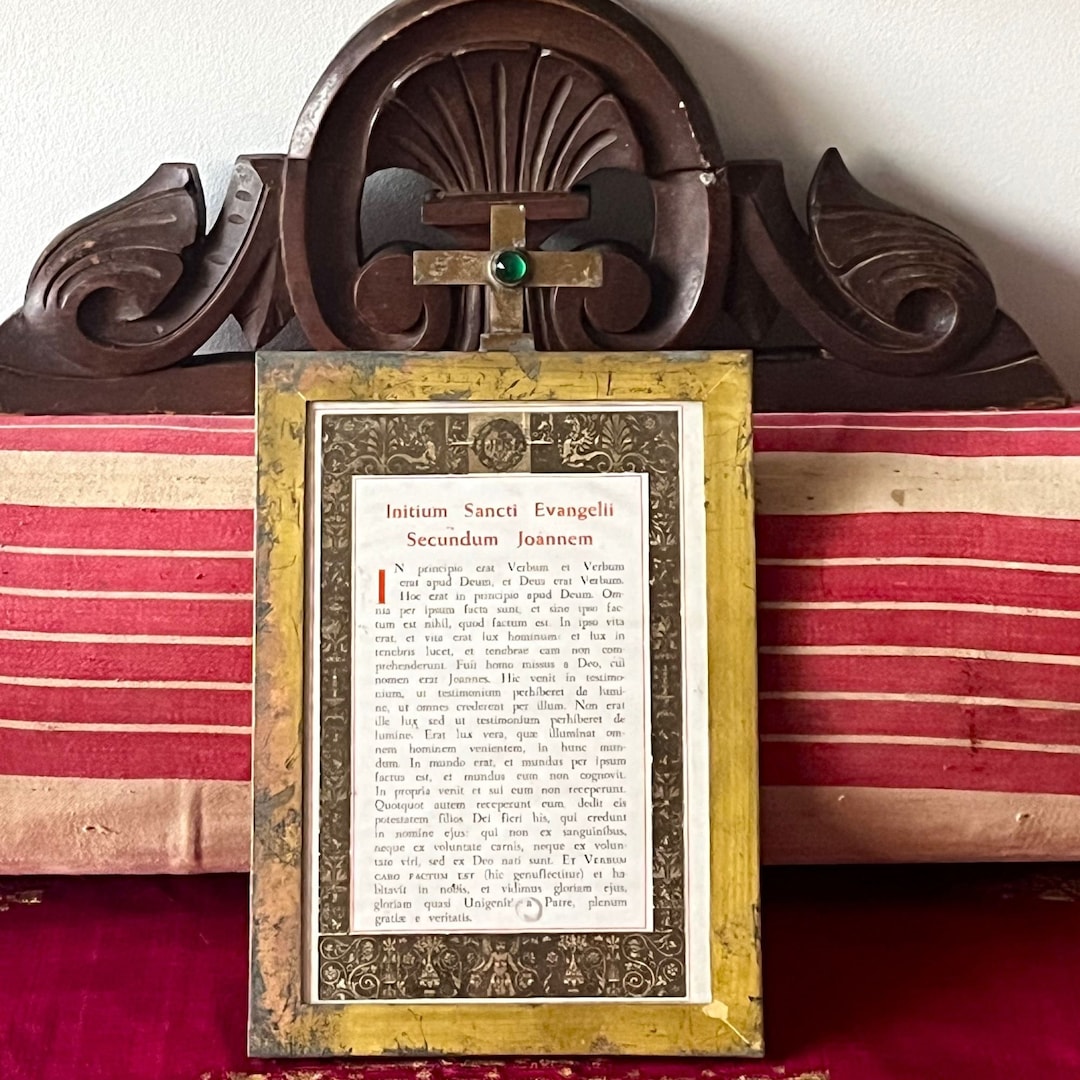 Initium Sancti Evangelii
Secundum Joannem
IN principio erat Verbum et Verbum
erat apud Deum, et Deus erat Verbum.
Hoc erat in principio apud Deum. Om-
nia per ipsum facta sunt, et sine ipso fac-
tum est nihil, quod factum est. In ipso vita
erat, et vita erat lux hominum: et lux in
tenebris lucet, et tenebrae eam non com-
prehenderunt. Fuit homo missus a Deo, cui
nomen erat Joannes. Hic venit in testimo-
nium, ut testimonium perhiberet de lumi-
ne, ut omnes crederent per illum. Non erat
ille lux sed ut testimonium perhiberet de
lumine. Erat lux vera, quæ illuminat om-
nem hominem venientem, in hunc mun-
dum. In mundo erat, et mundus per ipsum
factus est, et mundus eum non cognovit.
In propria venit et sui eum non receperunt.
Quotquot autem receperunt eum, dedit eis
potestatem filios Dei fieri his, qui credunt
in nomine ejus: qui non ex sanguinibus,
neque ex voluntate carnis, neque ex volun-
tate viri, sed ex Deo nati sunt. ET VERBUM
CARO FACTUM EST (hic genuflectitur) et ha-
bitavit in nobis, et vidimus gloriam ejus,
gloriam quasi Unigeniti a Patre, plenum
gratiæ e veritatis.